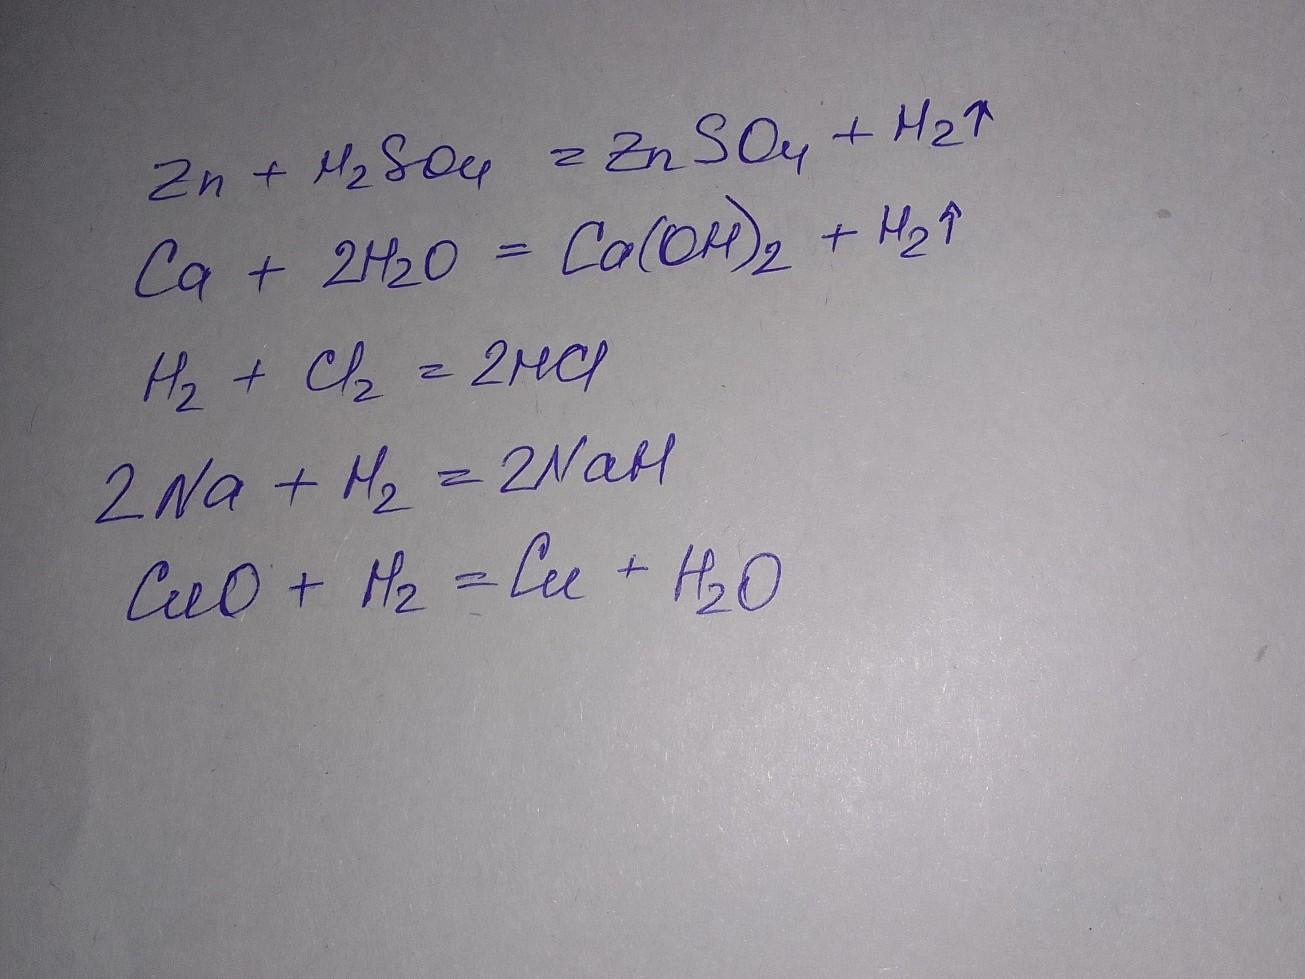 Zn + H₂SO₄ = ZnSO₄ + H₂↑
Ca + 2H₂O = Ca(OH)₂ + H₂↑
H₂ + Cl₂ = 2HCl
2Na + H₂ = 2NaH
CuO + H₂ = Cu + H₂O